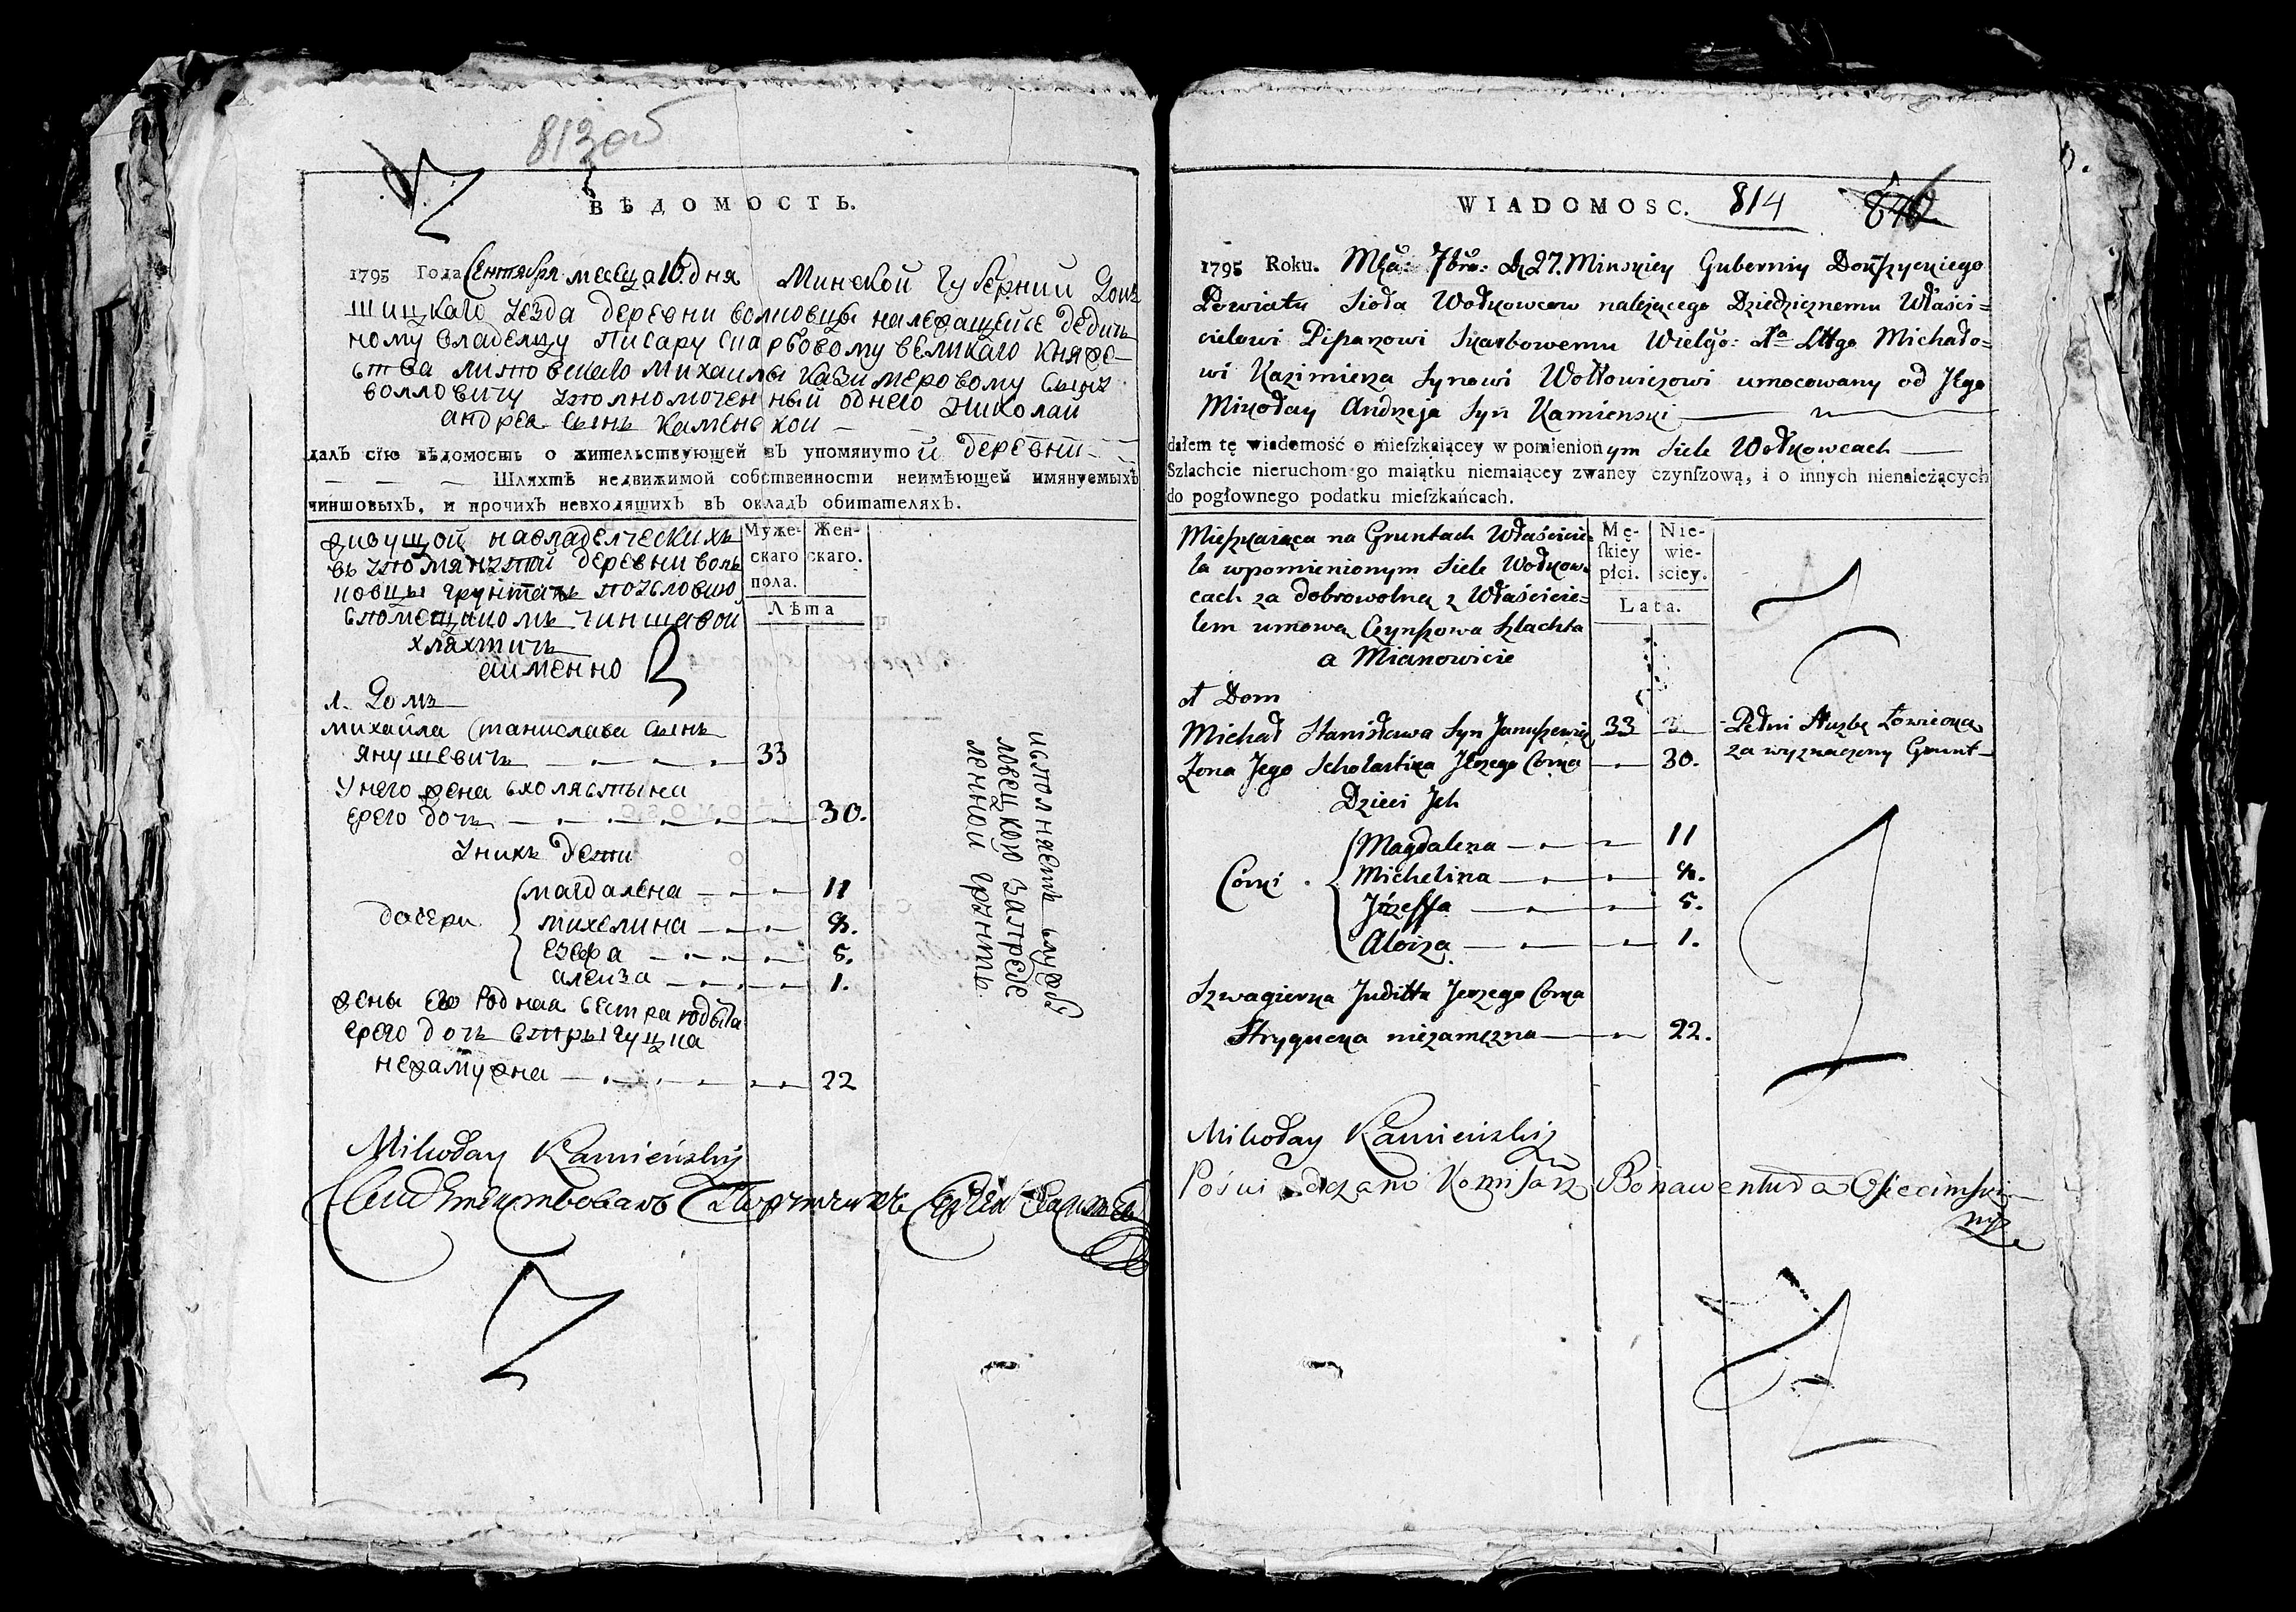 813 об
ВѢДОМОСТЬ.
1795 Года Сентября месеца 16 дня Минской Губернии Док
шицкаго уезда деревни волковцы належащейсе дедич
ному владелцу писару скарбовому великаго княже
ства литовскаго михаилы казимеровому сыну
волловичу уполномоченный однего Николаи
андрея сынъ каменскои
далъ сїю вѣдомость о жительствующей въ упомянутой деревни
Шляхтѣ недвижимой собственности неимѣющей имянуемыхъ
чиншовыхъ, и прочихъ невходящихъ въ окладъ обитателяхъ.
живущои навладелческихъ
въ упомянутои деревни вол
ковцы грунтахъ поусловию
спомещикомъ чиншовои
хляхтичъ
аименно
Муже-
скаго
пола.
Жен-
скаго.
Лѣта
1. Домъ
михаила станислава сынъ
янушевичъ 33
Унего жена схолястыка
ержего дочъ 30.
Униxъ дети
дочери
магдалена 11
михелина 8.
езефа 5.
алеиза 1.
жены его Родная сестра юдыта
ержего дочъ стрыгуцка
незамужна 22
исполняетъ службу
ловецкою заопреде
ленной грунтъ.
Mikołay Kamieński
Свидетельствовалъ Порутчикъ
WIADOMOSC. 814
1795 Roku. Mca: 7bra: D 27. Minskiey Gubernij Dokszyckiego
Powiatu Sioła Wołkowcow należącego Dziedzicznemu Właści=
cielowi Pisarzowi Skarbowemu Wielgo: Xa Littgo Michało=
wi Kazimierza Synowi Wołłowiczowi umocowany od Jego
Mikołay Andrzeja Syn Kamienski
dałem tę wiadomość o mieſzkaiącey w pomienionym Siele Wołkowcach
Szlachcie nieruchomego maiątku niemaiącey zwaney czynſzową, i o innych nienależących
do pogłownego podatku mieſzkańcach.
Mieszkaiąca na Gruntach Właściciė
la wpomienionym Siele Wołkow=
cach za dobrowolną z Właściciė=
lem umową Czynszowa Szlachta
a Mianowicie
Mę-
ſkiey
płci.
Nie-
wie-
ściey.
Lata.
1 Dom
Michał Stanisława Syn Januszewicz 33 - Pełni Służbę Łowiecką
Żona Jego Scholastika Jerzego Corka 30. za wyznaczony Grunt
Dzieci Jch
Corki
Magdalena 11
Michelina 8.
Józeffa 5.
Aloiza 1.
Szwagierka Juditta Jerzego Corka
Strygucka niezamężna 22.
Mikołay Kamieński
Poświadczano Komisarz Bonawentura Osiecimski